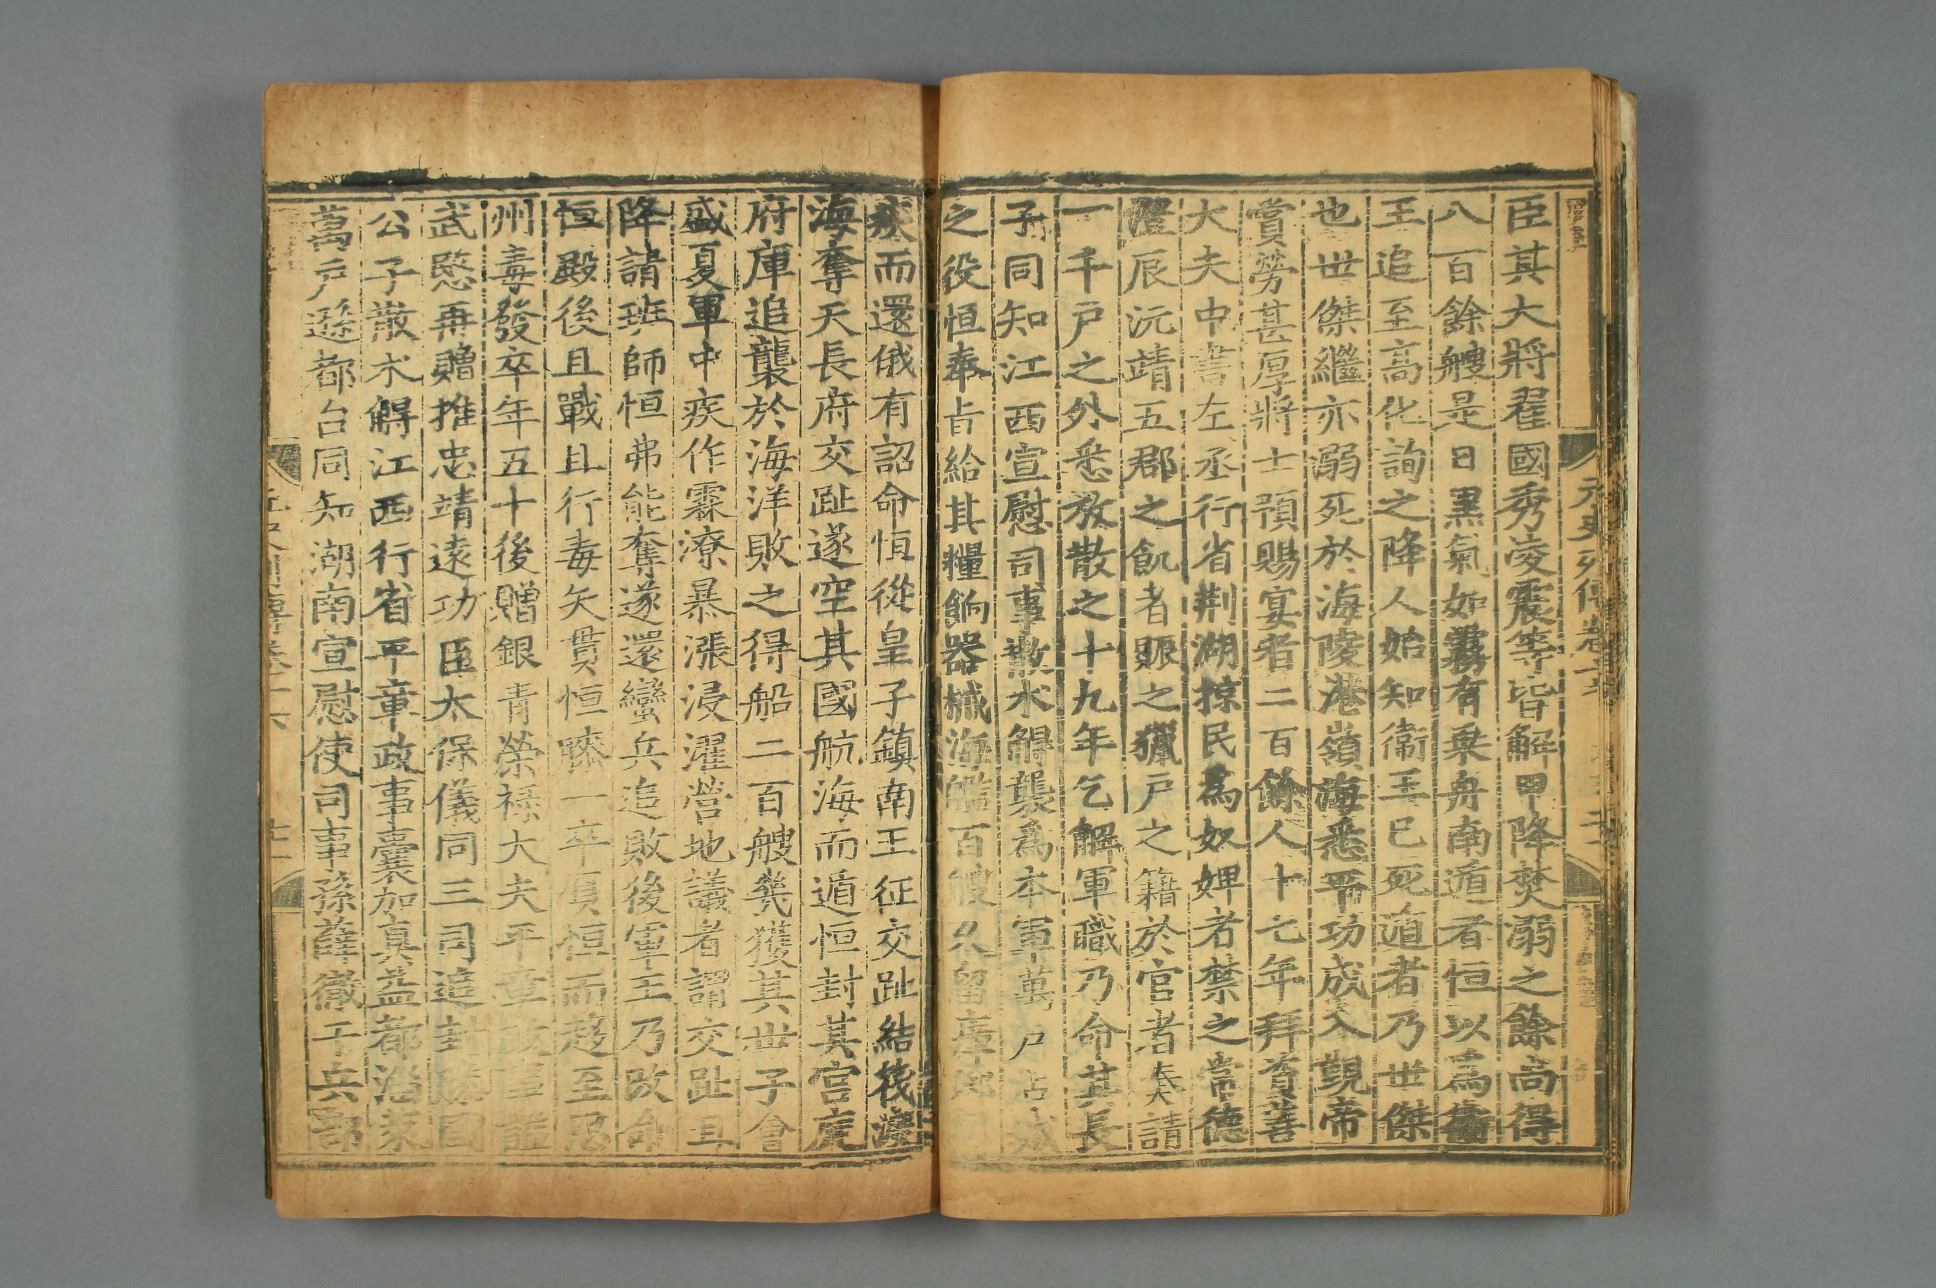 臣其大將翟國秀凌震等皆解甲降焚溺之餘尚得
八百餘艘是日黑氣如霧有乗舟南遁者恒以爲衞
王追至高化詢之降人始知衞王已死遁者乃世傑
也世傑繼亦溺死於海陵港嶺海悉平功成入覲帝
賞勞甚厚將士預賜宴者二百餘人十七年拜資善
大夫中書左丞行省荆湖掠民爲奴婢者禁之常德
澧辰沅靖五郡之飢者賑之獵戶之籍於官者奏請
一千戶之外悉放散之十九年乞解軍職乃命其長
子同知江西宣慰司事散木䚟襲爲本軍萬戶占城
之役恒奉旨給其糧餉器械海艦百艘久留
疾而還俄有詔命恒從皇子鎮南王征交趾結筏渡
海奪天長府交趾遂空其國航海而遁恒封其宮庭
府庫追襲於海洋敗之得船二百艘幾獲其世子會
盛夏軍中疾作霖潦暴漲浸濯營地議者謂交趾且
降請班師恒弗能奪遂還蠻兵追敗後軍王乃改命
恒殿後且戰且行毒矢貫恒膝一卒負恒而趍至思
州毒發卒年五十後贈銀青榮禄大夫平章政事謚
武愍再贈推忠靖遠功臣太保儀同三司追封滕國
公子散木䚟江西行省平章政事囊加真益都淄萊
萬戶遜都台同知湖南宣慰使司事孫薛徹干兵部
元史列傳卷十六